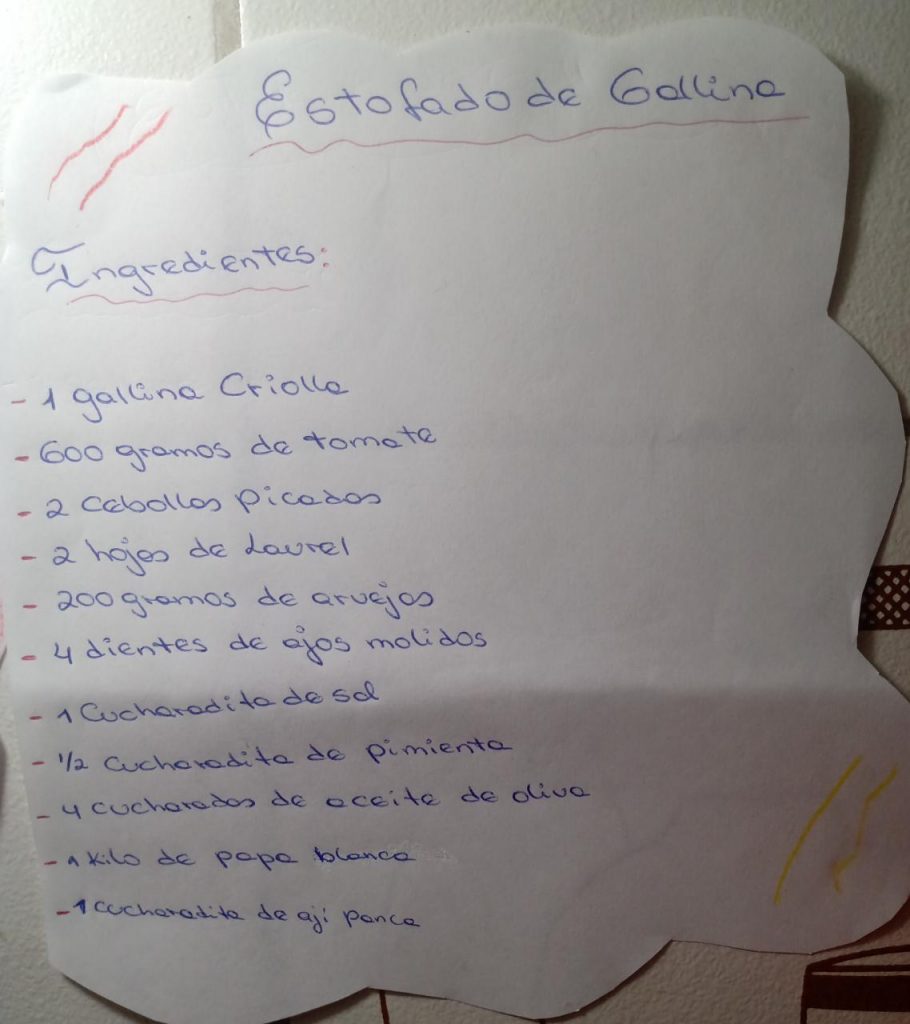 Estofado de Gallina
Ingredientes:
- 1 gallina Criolla
- 600 gramos de tomate
- 2 Cebollas Picadas
- 2 hojas de Laurel
- 200 gramos de arvejas
- 4 dientes de ajos molidos
- 1 Cucharadita de sal
- 1/2 Cucharadita de pimienta
- 4 cucharadas de aceite de oliva
- 1 Kilo de papa blanca
- 1 cucharadita de ají panca